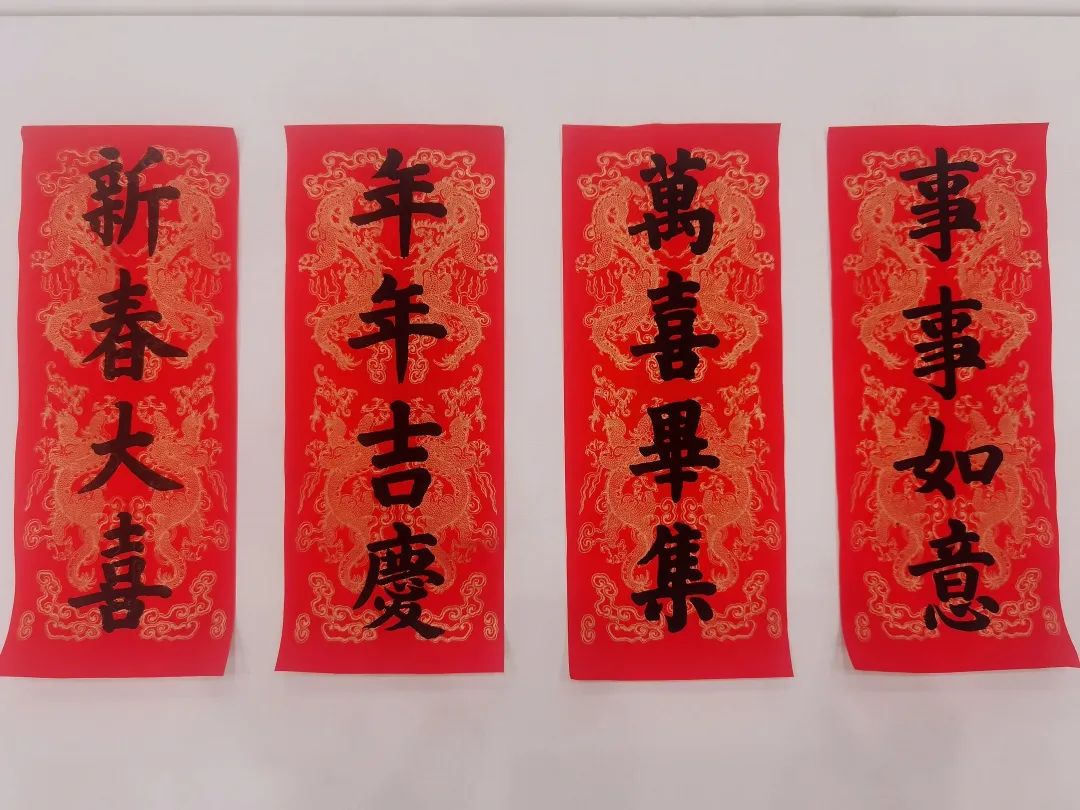 新春大喜
年年吉慶
萬喜畢集
事事如意